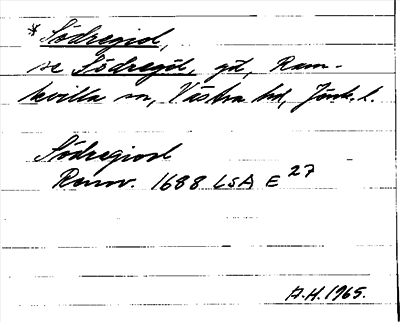 *Södregiol,
se Södregöl, gd, Ram-
kvilla sn, Västra hd, Jönk. l.
Södregiol
Renov. 1688 LSA E 27
A.H. 1965.